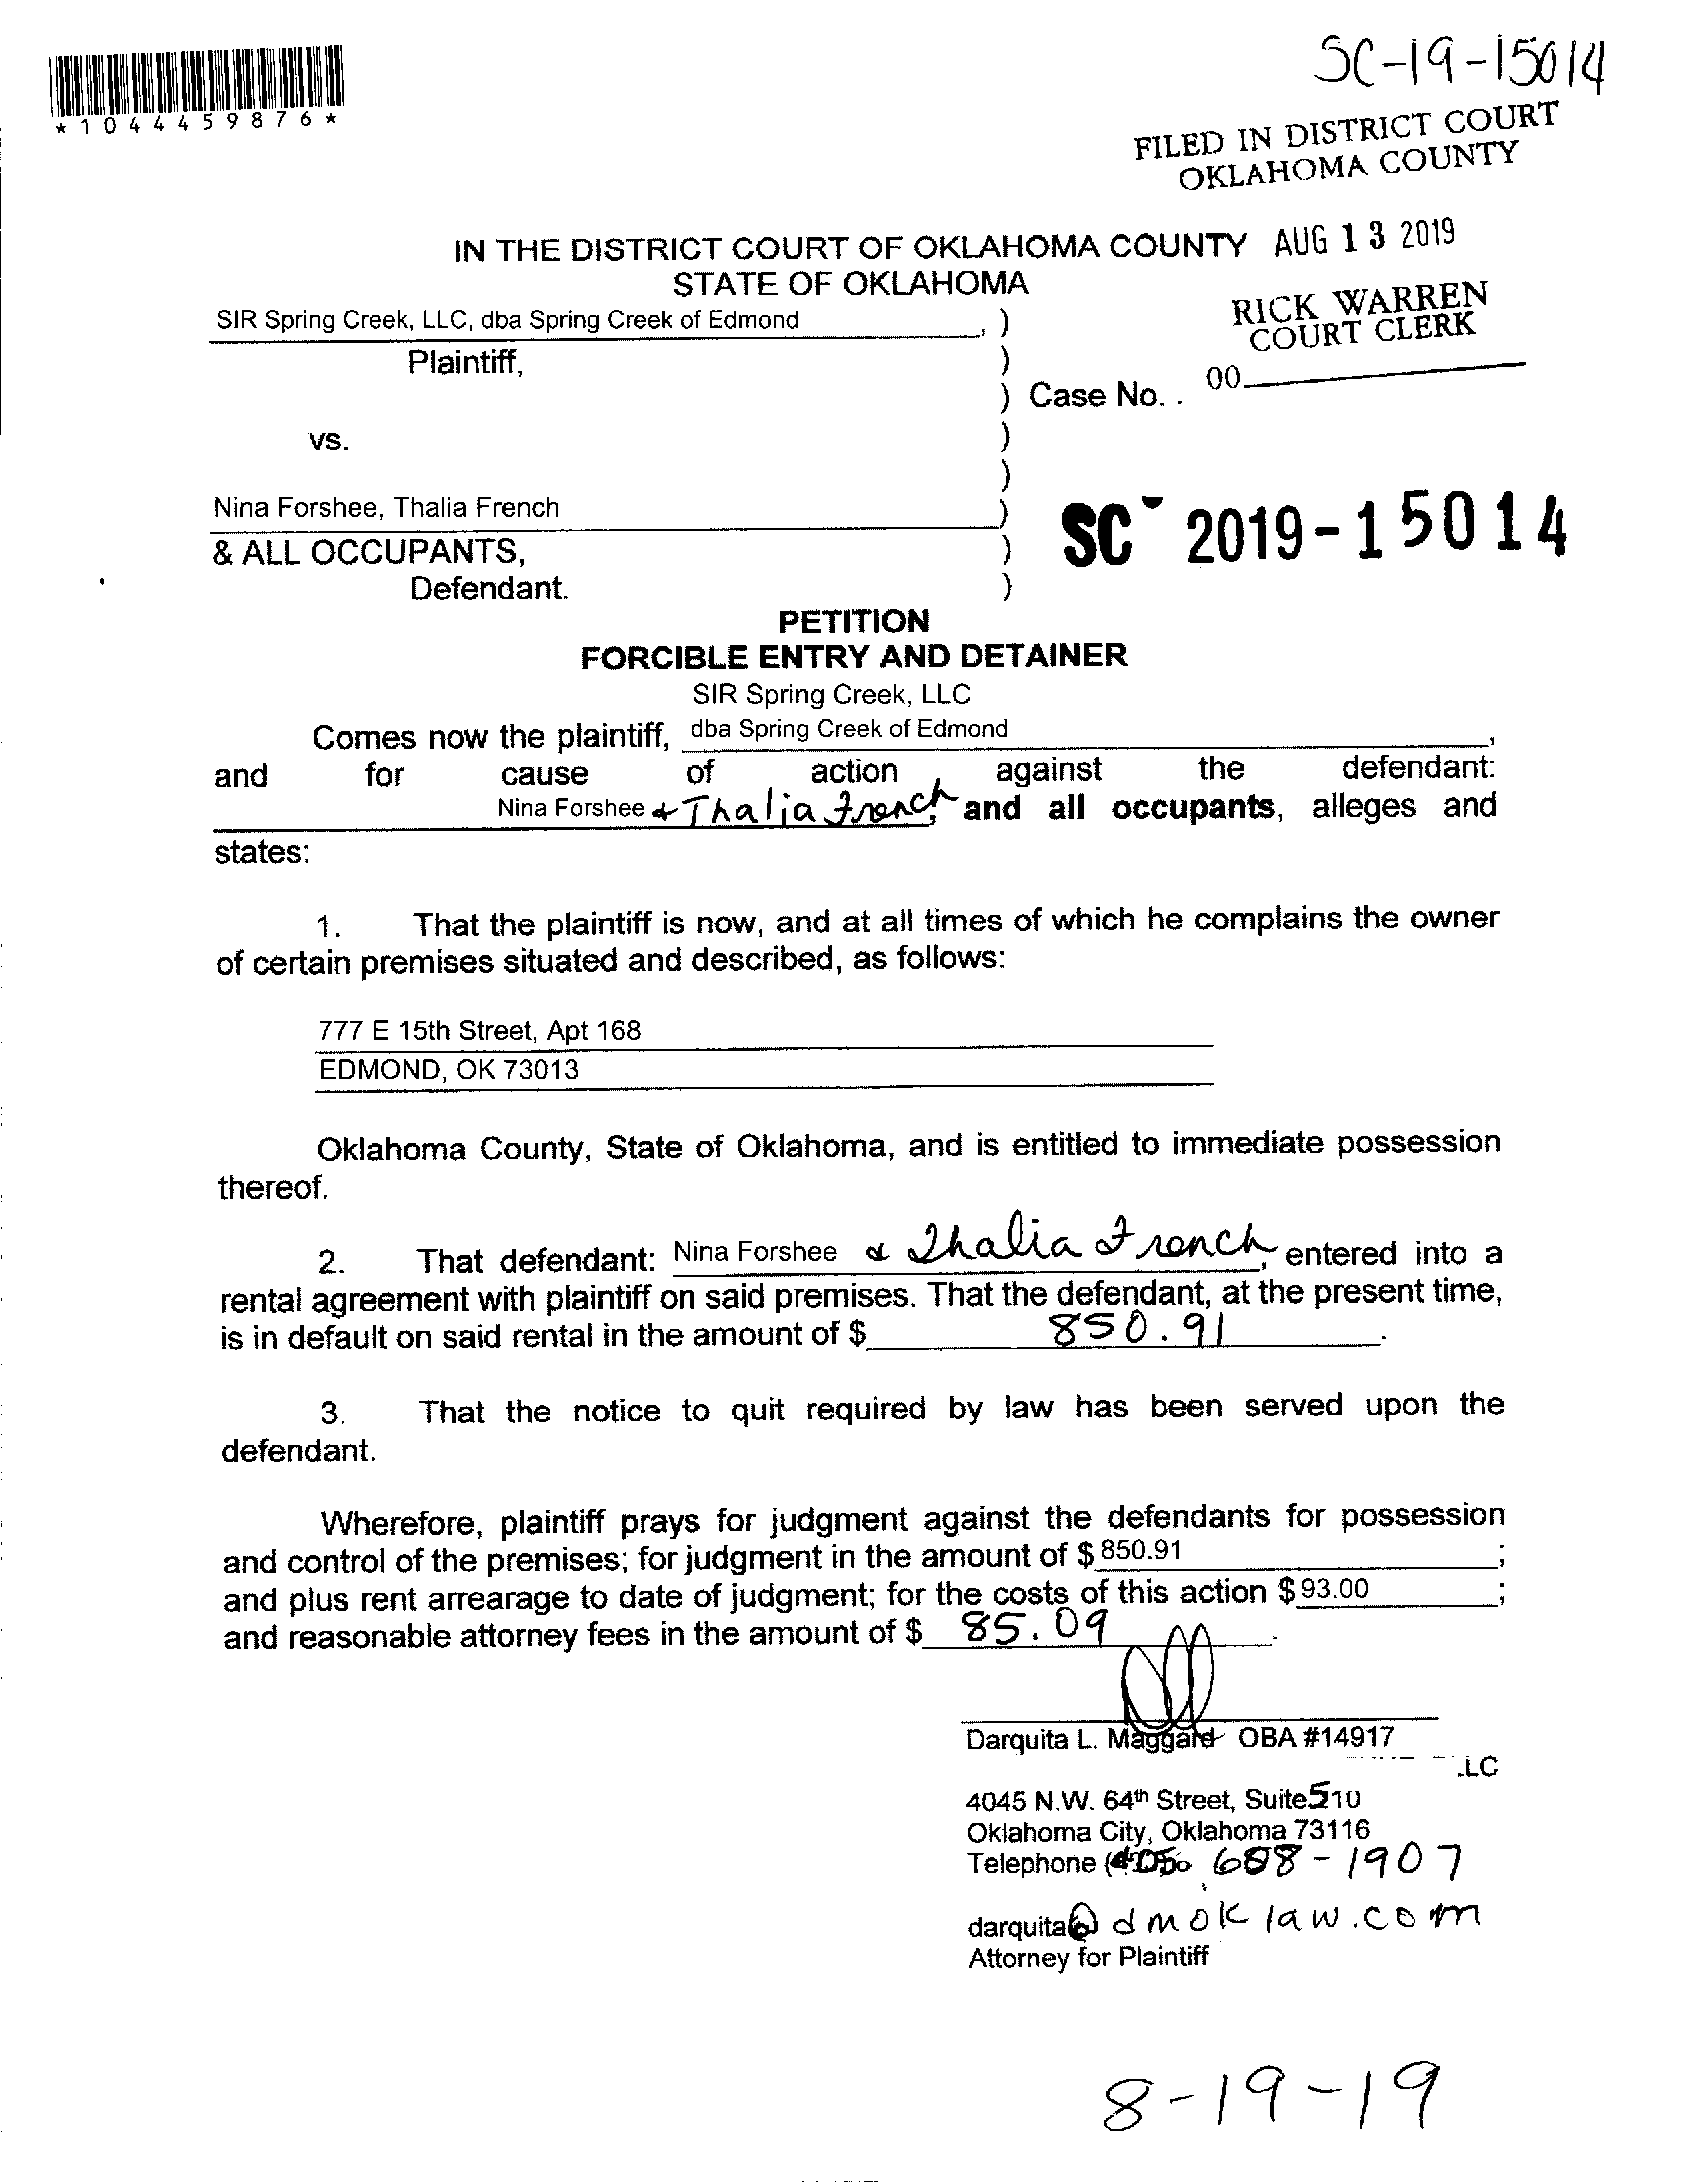 SC-19-15014
*1044459876*
FILED IN DISTRICT COURT
OKLAHOMA COUNTY
IN THE DISTRICT COURT OF OKLAHOMA COUNTY AUG 13 2019
STATE OF OKLAHOMA
RICK WARREN
COURT CLERK
SIR Spring Creek, LLC, dba Spring Creek of Edmond , )
Plaintiff, )
) Case No. . 00
vs. )
)
Nina Forshee, Thalia French )
SC 2019-15014
& ALL OCCUPANTS, )
Defendant. )
PETITION
FORCIBLE ENTRY AND DETAINER
SIR Spring Creek, LLC
Comes now the plaintiff, dba Spring Creek of Edmond ,
and for cause of action , against the defendant:
Nina Forshee & Thalia French, and all occupants, alleges and
states:
1. That the plaintiff is now, and at all times of which he complains the owner
of certain premises situated and described, as follows:
777 E 15th Street, Apt 168
EDMOND, OK 73013
Oklahoma County, State of Oklahoma, and is entitled to immediate possession
thereof.
2. That defendant: Nina Forshee & Thalia French, entered into a
rental agreement with plaintiff on said premises. That the defendant, at the present time,
is in default on said rental in the amount of $ 850.91 .
3. That the notice to quit required by law has been served upon the
defendant.
Wherefore, plaintiff prays for judgment against the defendants for possession
and control of the premises; for judgment in the amount of $ 850.91 ;
and plus rent arrearage to date of judgment; for the costs of this action $ 93.00 ;
and reasonable attorney fees in the amount of $ 85.09 .
Darquita L. Maggard OBA #14917
LC
4045 N.W. 64th Street, Suite 510
Oklahoma City, Oklahoma 73116
Telephone (405) 608-1907
darquita@dmoklaw.com
Attorney for Plaintiff
8-19-19